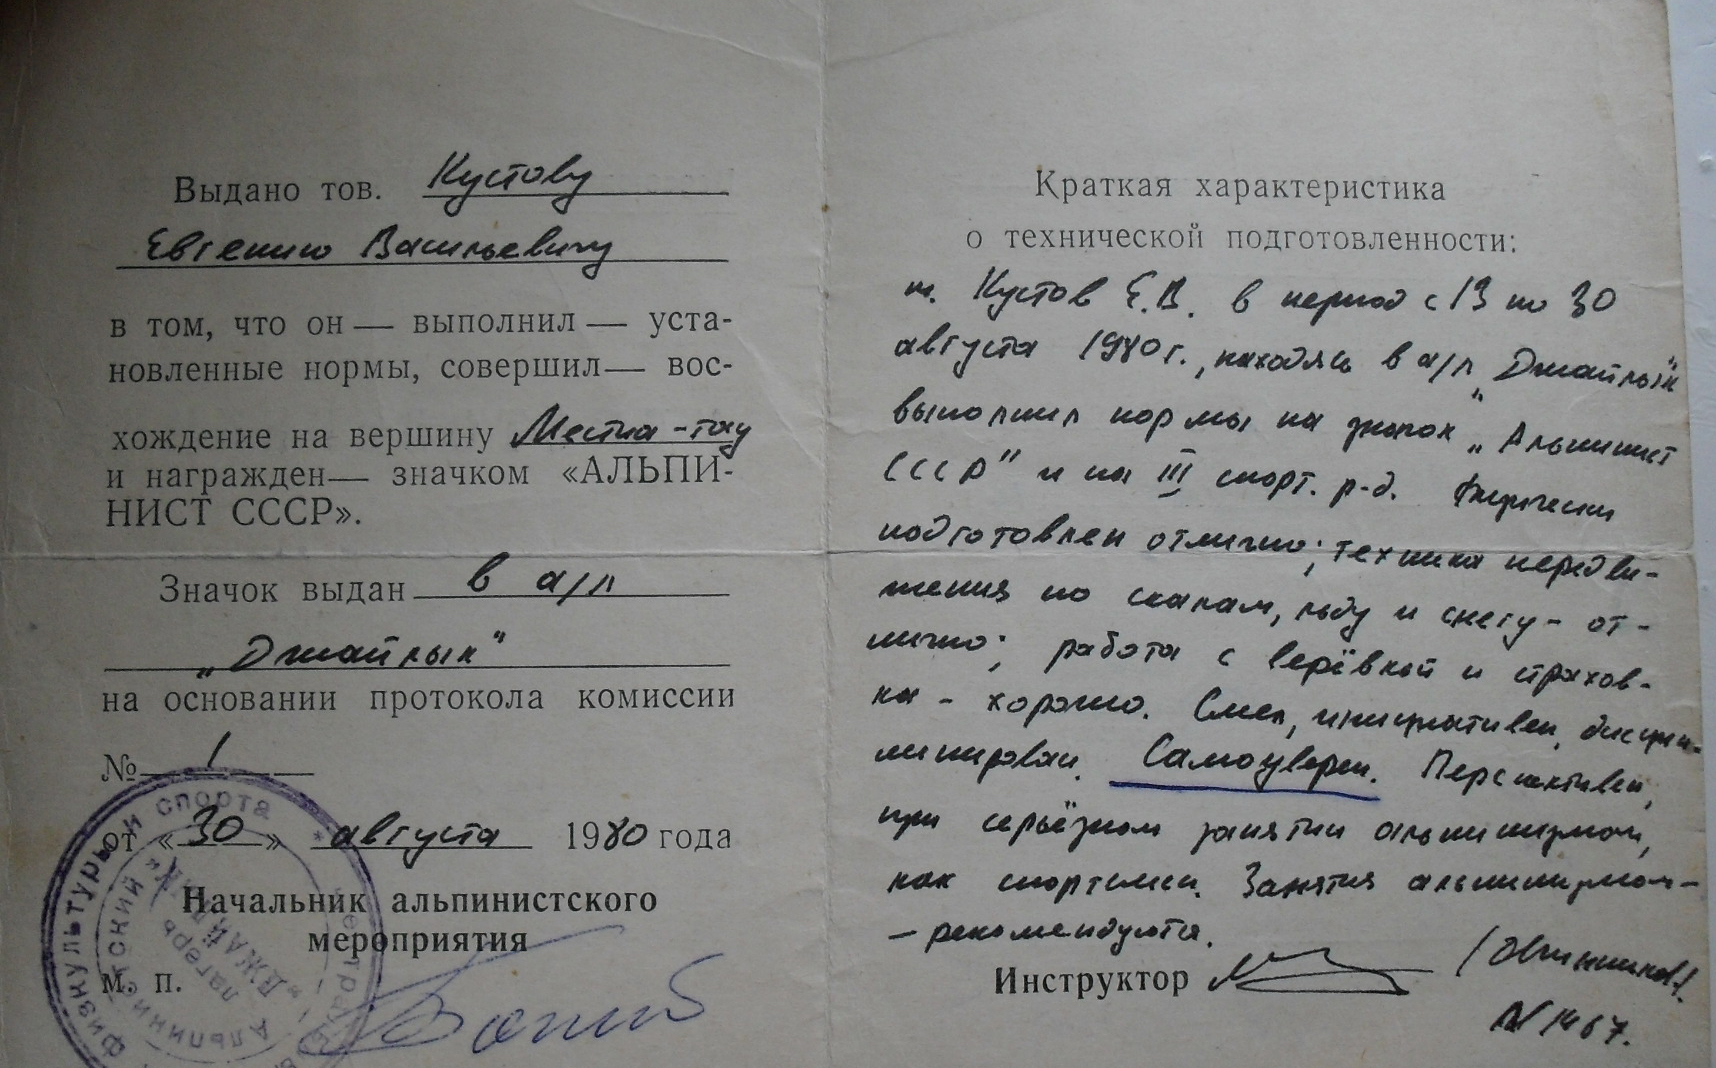 Выдано тов. Кустову
Евгению Васильевичу
в том, что он — выполнил — уста-
новленные нормы, совершил— вос-
хождение на вершину Местиа-тау
и награжден— значком «АЛЬПИ-
НИСТ СССР».
Значок выдан в а/л
„Джайлык"
на основании протокола комиссии
№ 1
от «30» августа 1980 года
Начальник альпинистского
мероприятия
М. П.
физкультуры и спорта
Альпинистский
лагерь
„ДЖАЙЛЫК"
Краткая характеристика
о технической подготовленности:
т. Кустов Е.В. в период с 13 по 30
августа 1980г., находясь в а/л „Джайлык"
выполнил нормы на значок „Альпинист
СССР" и на III спорт. р-д. Физически
подготовлен отлично; техника передви-
жения по скалам, льду и снегу - от-
лично; работа с верёвкой и страхов-
ка - хорошо. Смел, инициативен, дисцип-
линирован. Самоуверен. Перспективен,
при серьёзном занятии альпинизмом,
как спортсмен. Занятия альпинизмом-
- рекомендуются.
Инструктор
N 1467.